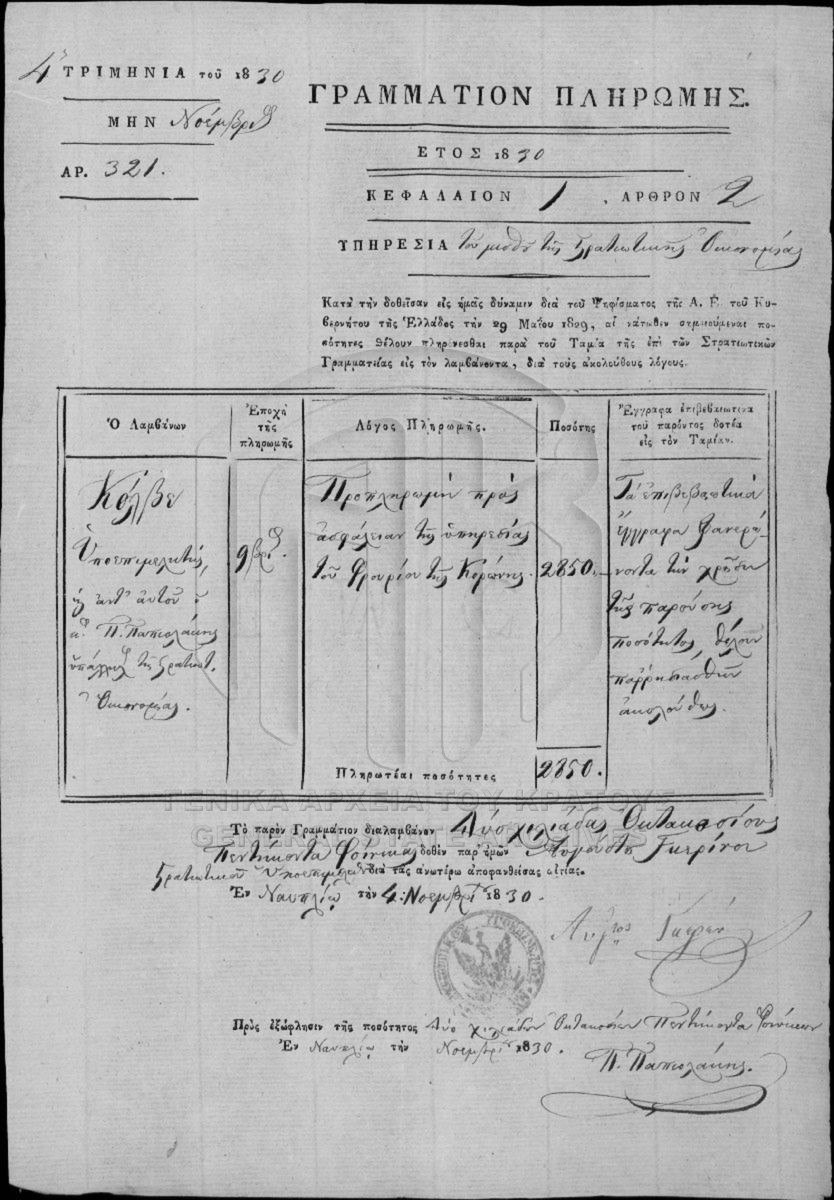 4η ΤΡΙΜΗΝΙΑ τοῦ 1830
ΜΗΝ Νοέμβριος
ΑΡ. 321.
ΓΡΑΜΜΑΤΙΟΝ ΠΛΗΡΩΜΗΣ.
ΕΤΟΣ 1830
ΚΕΦΑΛΑΙΟΝ 1, ΑΡΘΡΟΝ 2
ΥΠΗΡΕΣΙΑ τοῦ μισθοῦ τῆς Στρατιωτικῆς Οἰκονομίας
Κατὰ τὴν δοθεῖσαν εἰς ἡμᾶς δύναμιν διὰ τοῦ Ψηφίσματος τῆς Α. Ε. τοῦ Κυ-
βερνήτου τῆς Ἑλλάδος τὴν 29 Μαΐου 1829, αἱ κάτωθεν σημειούμεναι πο-
σότητες θέλουν πληρώνεσθαι παρὰ τοῦ Ταμία τῆς ἐπὶ τῶν Στρατιωτικῶν
Γραμματείας εἰς τὸν λαμβάνοντα, διὰ τοὺς ἀκολούθους λόγους.
Ὁ Λαμβάνων
Ἐποχὴ τῆς πληρωμῆς
Λόγος Πληρωμῆς.
Ποσότης
Ἔγγραφα ἐπιβεβαιωτικὰ τοῦ παρόντος δοτέα εἰς τὸν Ταμίαν.
Κόλβε
Ὑποεπιμελητής,
ἀντ' αὐτοῦ ὁ
κ. Π. Παπιολάκης
ὑπάλληλος τῆς Στρατιωτ.
Οἰκονομίας.
9βρίου.
Προπληρωμὴ πρὸς
ἀσφάλειαν τῆς ὑπηρεσίας
τοῦ Φρουρίου τῆς Κορώνης.
2850.
Τὰ ἐπιβεβαιωτικὰ
ἔγγραφα φανερώ-
νοντα τὴν χρῆσιν
τῆς παρούσης
ποσότητος, θέλουν
παρρησιασθῆν
ἀκολούθως.
Πληρωτέαι ποσότητες
2850.
ΓΕΝΙΚΑ ΑΡΧΕΙΑ ΤΟΥ ΚΡΑΤΟΥΣ
GENERAL STATE ARCHIVES
Τὸ παρὸν Γραμμάτιον διαλαμβάνον Δύο χιλιάδας Ὀκτακοσίους
Πεντήκοντα Φοίνικας δοθὲν παρ' ἡμῶν Αὐγούστου
Στρατιωτικοῦ διὰ τὰς ἀνωτέρω ἀποφανθείσας αἰτίας.
Ἐν Ναυπλίῳ τὴν 4: Νοεμβρίου 1830.
Πρὸς ἐξώφλησιν τῆς ποσότητος Δύο χιλιάδων Ὀκτακοσίων Πεντήκοντα Φοινίκων
Ἐν Ναυπλίῳ τὴν Νοεμβρίου 1830.
Π. Παπιολάκης.